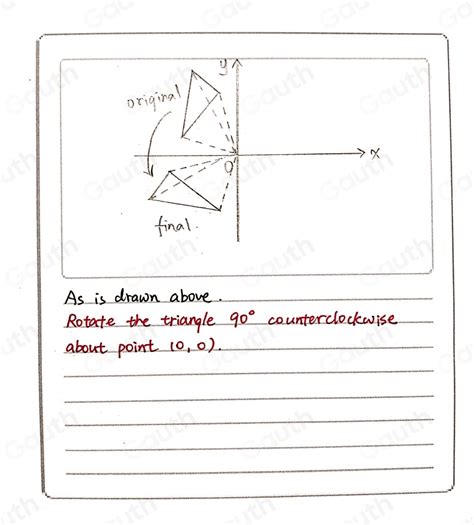 y
original
x
O
final.
As is drawn above.
Rotate the triangle 90° counterclockwise
about point (0,0).